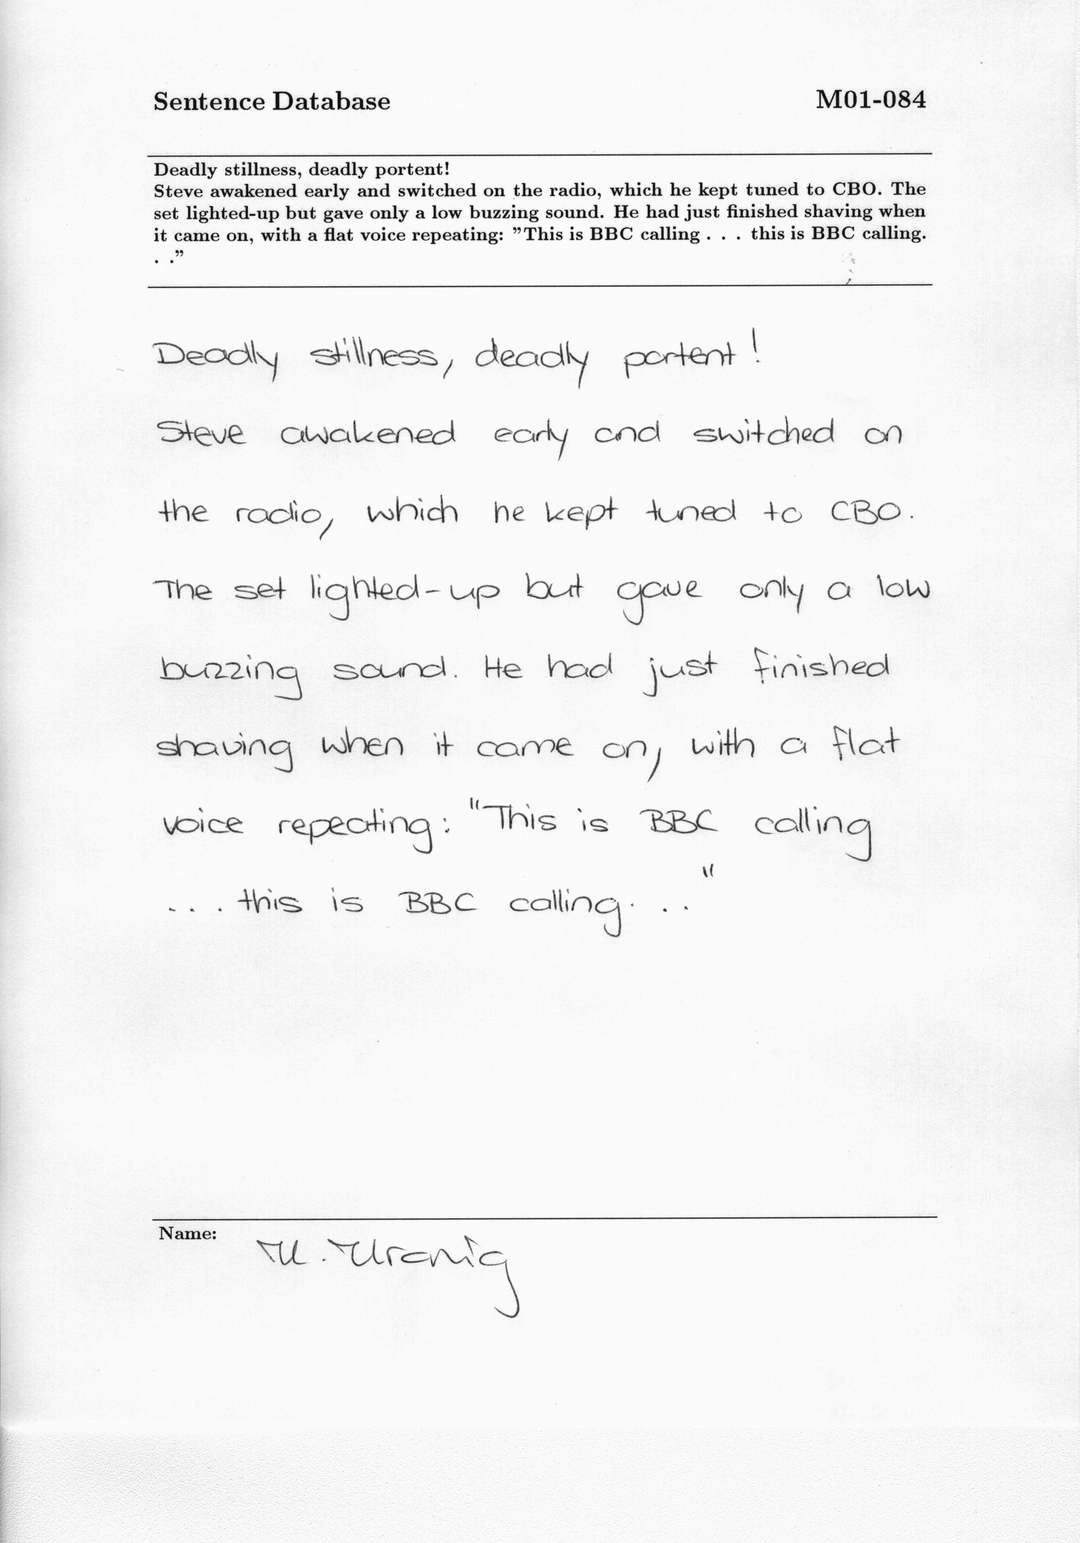 Sentence Database M01-084
Deadly stillness, deadly portent!
Steve awakened early and switched on the radio, which he kept tuned to CBO. The
set lighted-up but gave only a low buzzing sound. He had just finished shaving when
it came on, with a flat voice repeating: ”This is BBC calling . . . this is BBC calling.
. .”
Deadly stillness, deadly portent!
Steve awakened early and switched on
the radio, which he kept tuned to CBO.
The set lighted-up but gave only a low
buzzing sound. He had just finished
shaving when it came on, with a flat
voice repeating: "This is BBC calling
... this is BBC calling. . . "
Name: